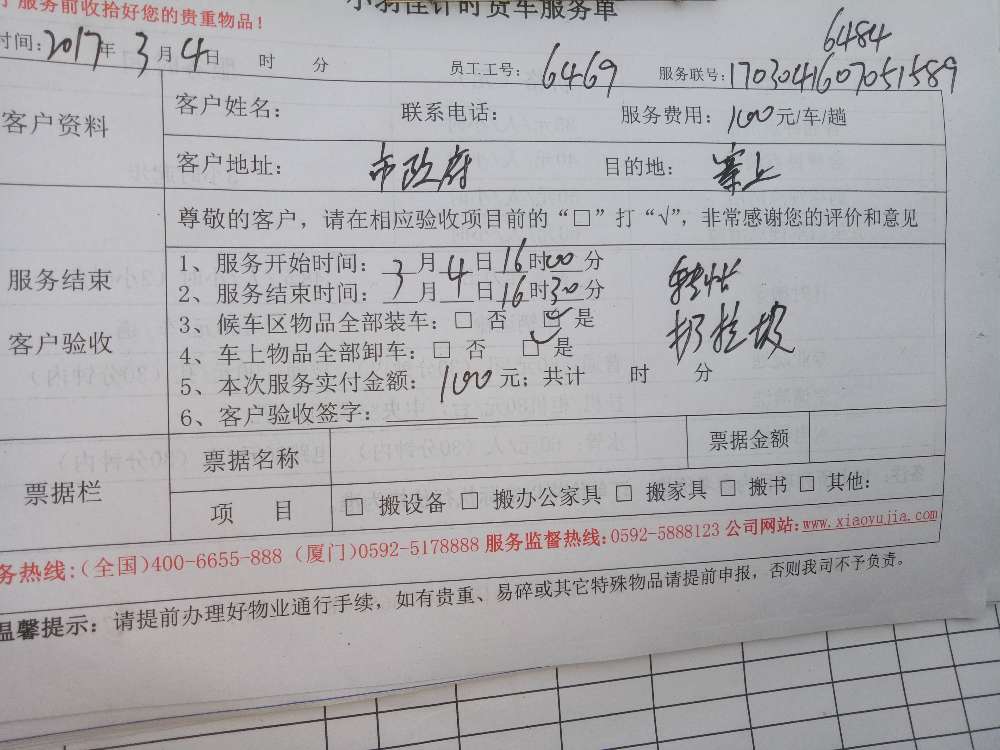 服务前收拾好您的贵重物品!
计时货车服务单
时间: 2017年 3月 4日 时 分
6484
员工工号: 6469 服务联号: 1703041607051589
客户资料
客户姓名: 联系电话: 服务费用: 100元/车/趟
客户地址: 市政府 目的地: 寨上
尊敬的客户，请在相应验收项目前的“□”打“√”，非常感谢您的评价和意见
服务结束
客户验收
1、服务开始时间: 3月4日16时00分
2、服务结束时间: 3月4日16时30分
3、候车区物品全部装车: □ 否 □ 是
4、车上物品全部卸车: □ 否 □ 是
5、本次服务实付金额: 100元; 共计 时 分
6、客户验收签字:
扔垃圾
票据栏
票据名称 票据金额
项 目 □ 搬设备 □ 搬办公家具 □ 搬家具 □ 搬书 □ 其他:
务热线:(全国)400-6655-888 (厦门)0592-5178888 服务监督热线:0592-5888123 公司网站:www.xiaoyujia.com
温馨提示: 请提前办理好物业通行手续，如有贵重、易碎或其它特殊物品请提前申报，否则我司不予负责。